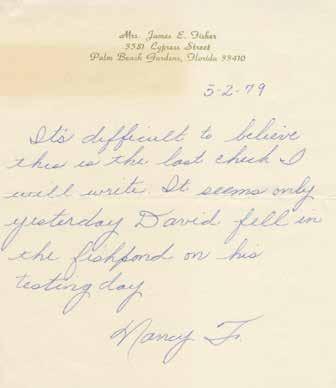 Mrs. James E. Fisher
3381 Cypress Street
Palm Beach Gardens, Florida 33410
5-2-79
It's difficult to believe
this is the last check I
will write. It seems only
yesterday David fell in
the fishpond on his
testing day
Nancy F.